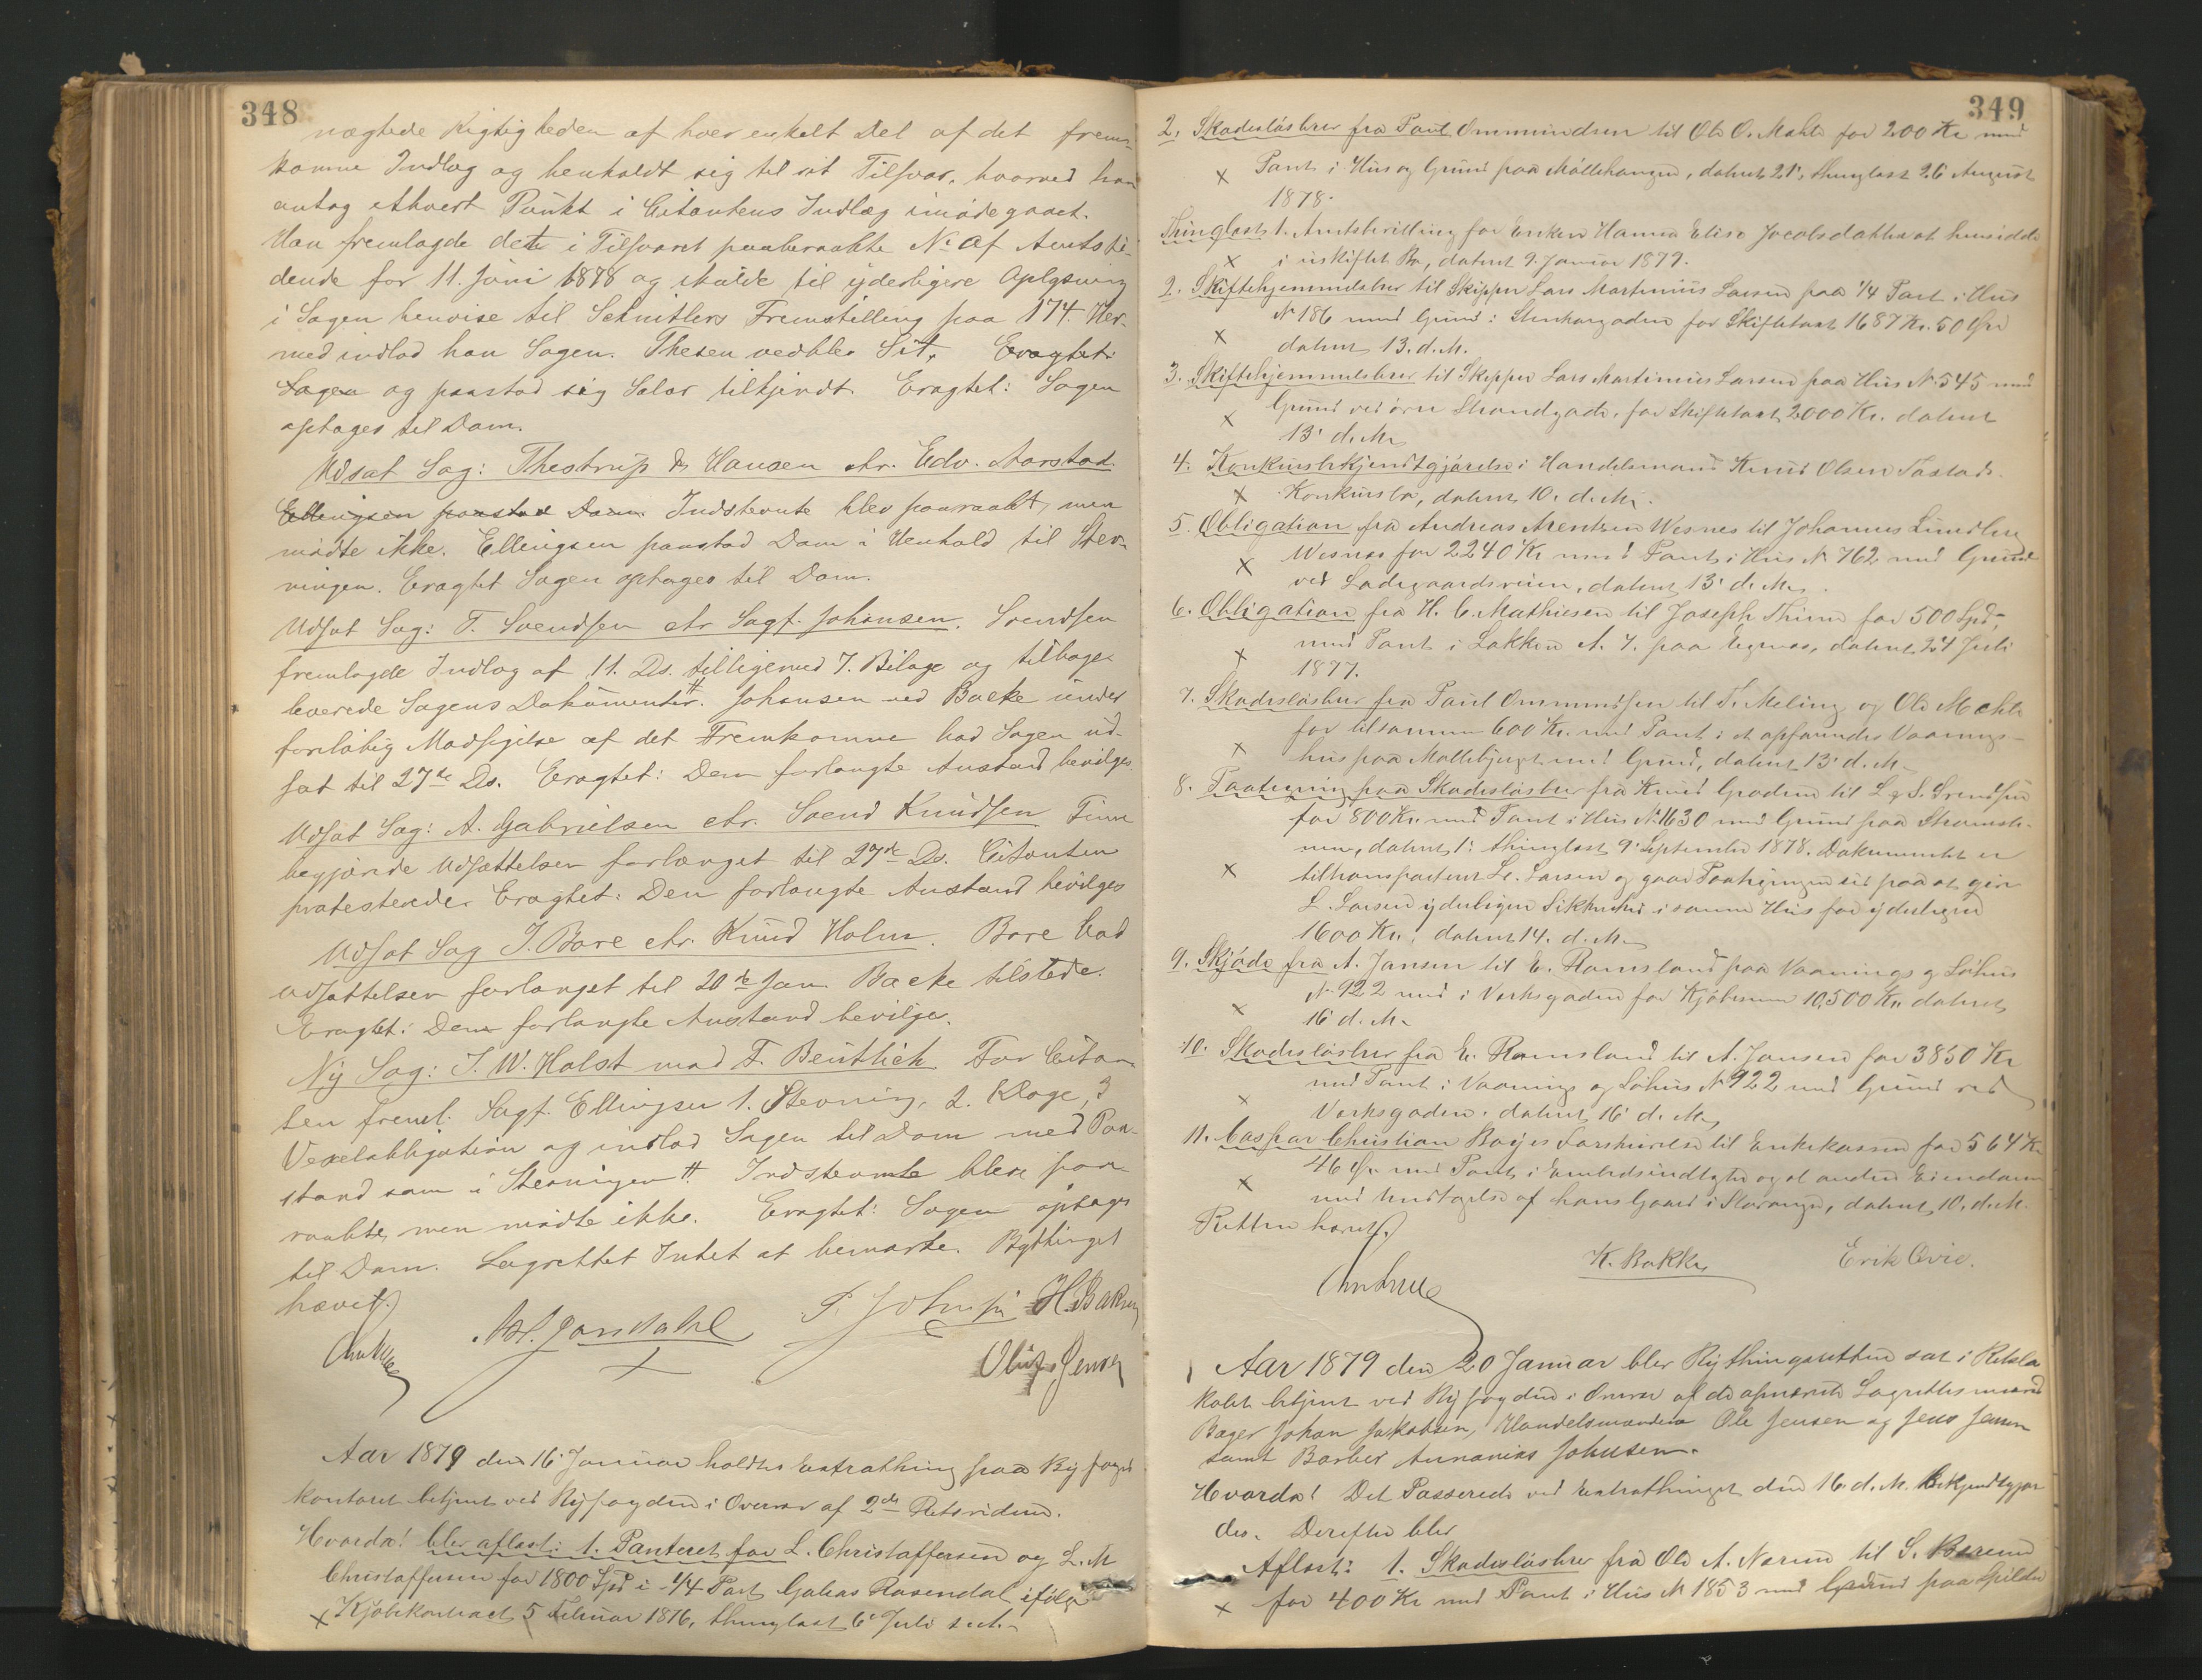 348
nægtede Rigtigheden af hver enkelt Del af det frem-
komne Indlæg og henholdt sig til sit Tilsvar, hvorved han
antog ethvert Punkt i Citantens Indlæg imødegaaet.
Han fremlagde det i Tilsvaret paaberaabte No af Amtsti-
dende for 11. Juni 1878 og skulde til yderligere Oplysning
i Sagen henvise til Schnitlers Fremstilling paa 174. Her-
med indlod han Sagen. Thesen vedblev Sit. Eragtet:
Sagen og paastod sig Salær tilkjendt. Eragtet: Sagen
optages til Dom.
Udsat Sag: Thestrup & Hansen ctr. Edv. Aarstad
Ellingsen paastod Dom. Indstevnte blev paaraabt, men
mødte ikke. Ellingsen paastod Dom i Henhold til Stev-
ningen. Eragtet Sagen optages til Dom.
Udsat Sag: T. Svendsen ctr Sagf. Johansen. Svendsen
fremlagde Indlæg af 11. Ds. tilligemed 7. Bilage og tilbage-
leverede Sagens Dokumenter. Johansen ved Backe under
foreløbig Modsigelse af det Fremkomne bad Sagen ud-
sat til 27de Ds. Eragtet: Den forlangte Anstand bevilges.
Udsat Sag: A. Gabrielsen ctr. Svend Knudsen Finn
begjærede Udsættelsen forlænget til 27de Ds. Citanten
protesterede. Eragtet: Den forlangte Anstand bevilges
Udsat Sag J. Bore ctr. Knud Holm. Bore bad
Udsættelsen forlænget til 20de Jan Backe tilstede.
Eragtet: Den forlangte Anstand bevilges.
Ny Sag: J. W. Holst mod F. Beutlich. For Citan-
ten freml. Sagf. Ellingsen 1. Stevning, 2. Klage, 3
Vexelobligation og indlod Sagen til Dom med Paa-
stand som i Stevningen. Indstevnte blev paa-
raabte, men mødte ikke. Eragtet: Sagen optages
til Dom. Lagrettet Intet at bemærke. Bythinget
hævet.
Aar 1879 den 16' Januar holdtes Extrathing paa Byfoged
kontoret betjent ved Byfogden i Overvær af 2de Retsvidner.
Hvorda! blev aflæst: 1. Panteret for L. Christoffersen og L. M
Christoffersen for 1800 Spd i 1/4 Part Galeas Rosendal ifølge
x Kjøbekontract 5 Februar 1876, thinglæst 6' Juli s. A.
349
2. Skadesløsbrev fra Paul Ommundsen til Ole O. Mæhle for 200 Kr med
x Pant i Hus og Grund paa Møllehaugen, dateret 21', thinglæst 26' August
1878.
Thinglæst 1. Amtsbevilling for Enken Hanna Elise Jacobsdatter at hensidde
x i uskiftet Bo, dateret 9. Januar 1879.
2. Skiftehjemmelsbrev til Skipper Lars Martinius Larsen paa 1/4 Part i Hus
x No 186 med Grund i Stenkargaden for Skiftetaxt 1687 Kr. 50 Øre
dateret 13. d. M.
3. Skiftehjemmelsbrev til Skipper Lars Martinius Larsen paa Hus No 545 med
x Grund ved øvre Strandgade, for Skiftetaxt 2000 Kr. dateret
13' d. M.
4. Konkursbekjendtgjørelse i Handelsmand Knud Olsen Tastads
x Konkursbo, dateret 10. d. M.
5. Obligation fra Andreas Arentzen Wesnes til Johannes Lindberg
x Wesnes for 2240 Kr med Pant i Hus No 762 med Grund
ved Ladegaardsveien, dateret 13' d. M.
6. Obligation fra H. C. Mathiesen til Joseph Thime for 500 Spd.
x med Pant i Løkken No 7. paa Egenæs, dateret 24 Juli
1877.
7. Skadesløsbrev fra Paul Ommundsen til T. Meling og Ole Mæhle
x for tilsammen 600 Kr. med Pant i et opførendes Vaanings-
hus paa Møllebjerget med Grund, dateret 13' d. M.
8. Paategning paa Skadesløsbrev fra Knud Grødem til L & S. Svendsen
for 800 Kr. med Pant i Hus No 1630 med Grund paa
dateret 1' thinglæst 9' September 1878. Dokumentet er
x transporteret L. Larsen og gaar Paategningen ud paa at give
L. Larsen yderligere Sikkerhed i samme Hus for yderligere
1600 Kr., dateret 14. d. M.
9. Skjøde fra A. Jansen til E. Ramsland paa Vaanings og Søhus
x No 922 med i Verksgaden for Kjøbesum 10,500 Kr. dateret
16' d. M.
10. Skadesløsbrev fra E. Ramsland til A. Jansen for 3850 Kr
x med Pant i Vaanings og Søhus No 922 med Grund ved
Verksgaden, dateret 16' d. M.
11. Caspar Christian Boyes Forskrivelse til Enkekassen for 564 Kr
x 46 Øre med Pant i Embedsindtægter og al anden Eiendom
med Undtagelse af hans Gaard i Stavanger, dateret 10. d. M.
Retten hævet.
K. Bakke
Erik Qvie.
Aar 1879 den 20 Januar blev Bythingsretten sat i Retslo
kalet betjent ved Byfogden i Overvær af de opnævnte Lagrettesmænd
Bager Johan Jakobsen, Handelsmændene Ole Jensen og Jens Jensen
samt Barber Annanias Johnsen.
Hvorda! Det Passerede ved Extrathinget den 16. d. M. bekjendtgjor
des. Derefter blev
Aflæst: 1. Skadesløsbrev fra Ole A. Nærem til S.
x for 400 Kr med Pant i Hus No 1853 med Grund paa